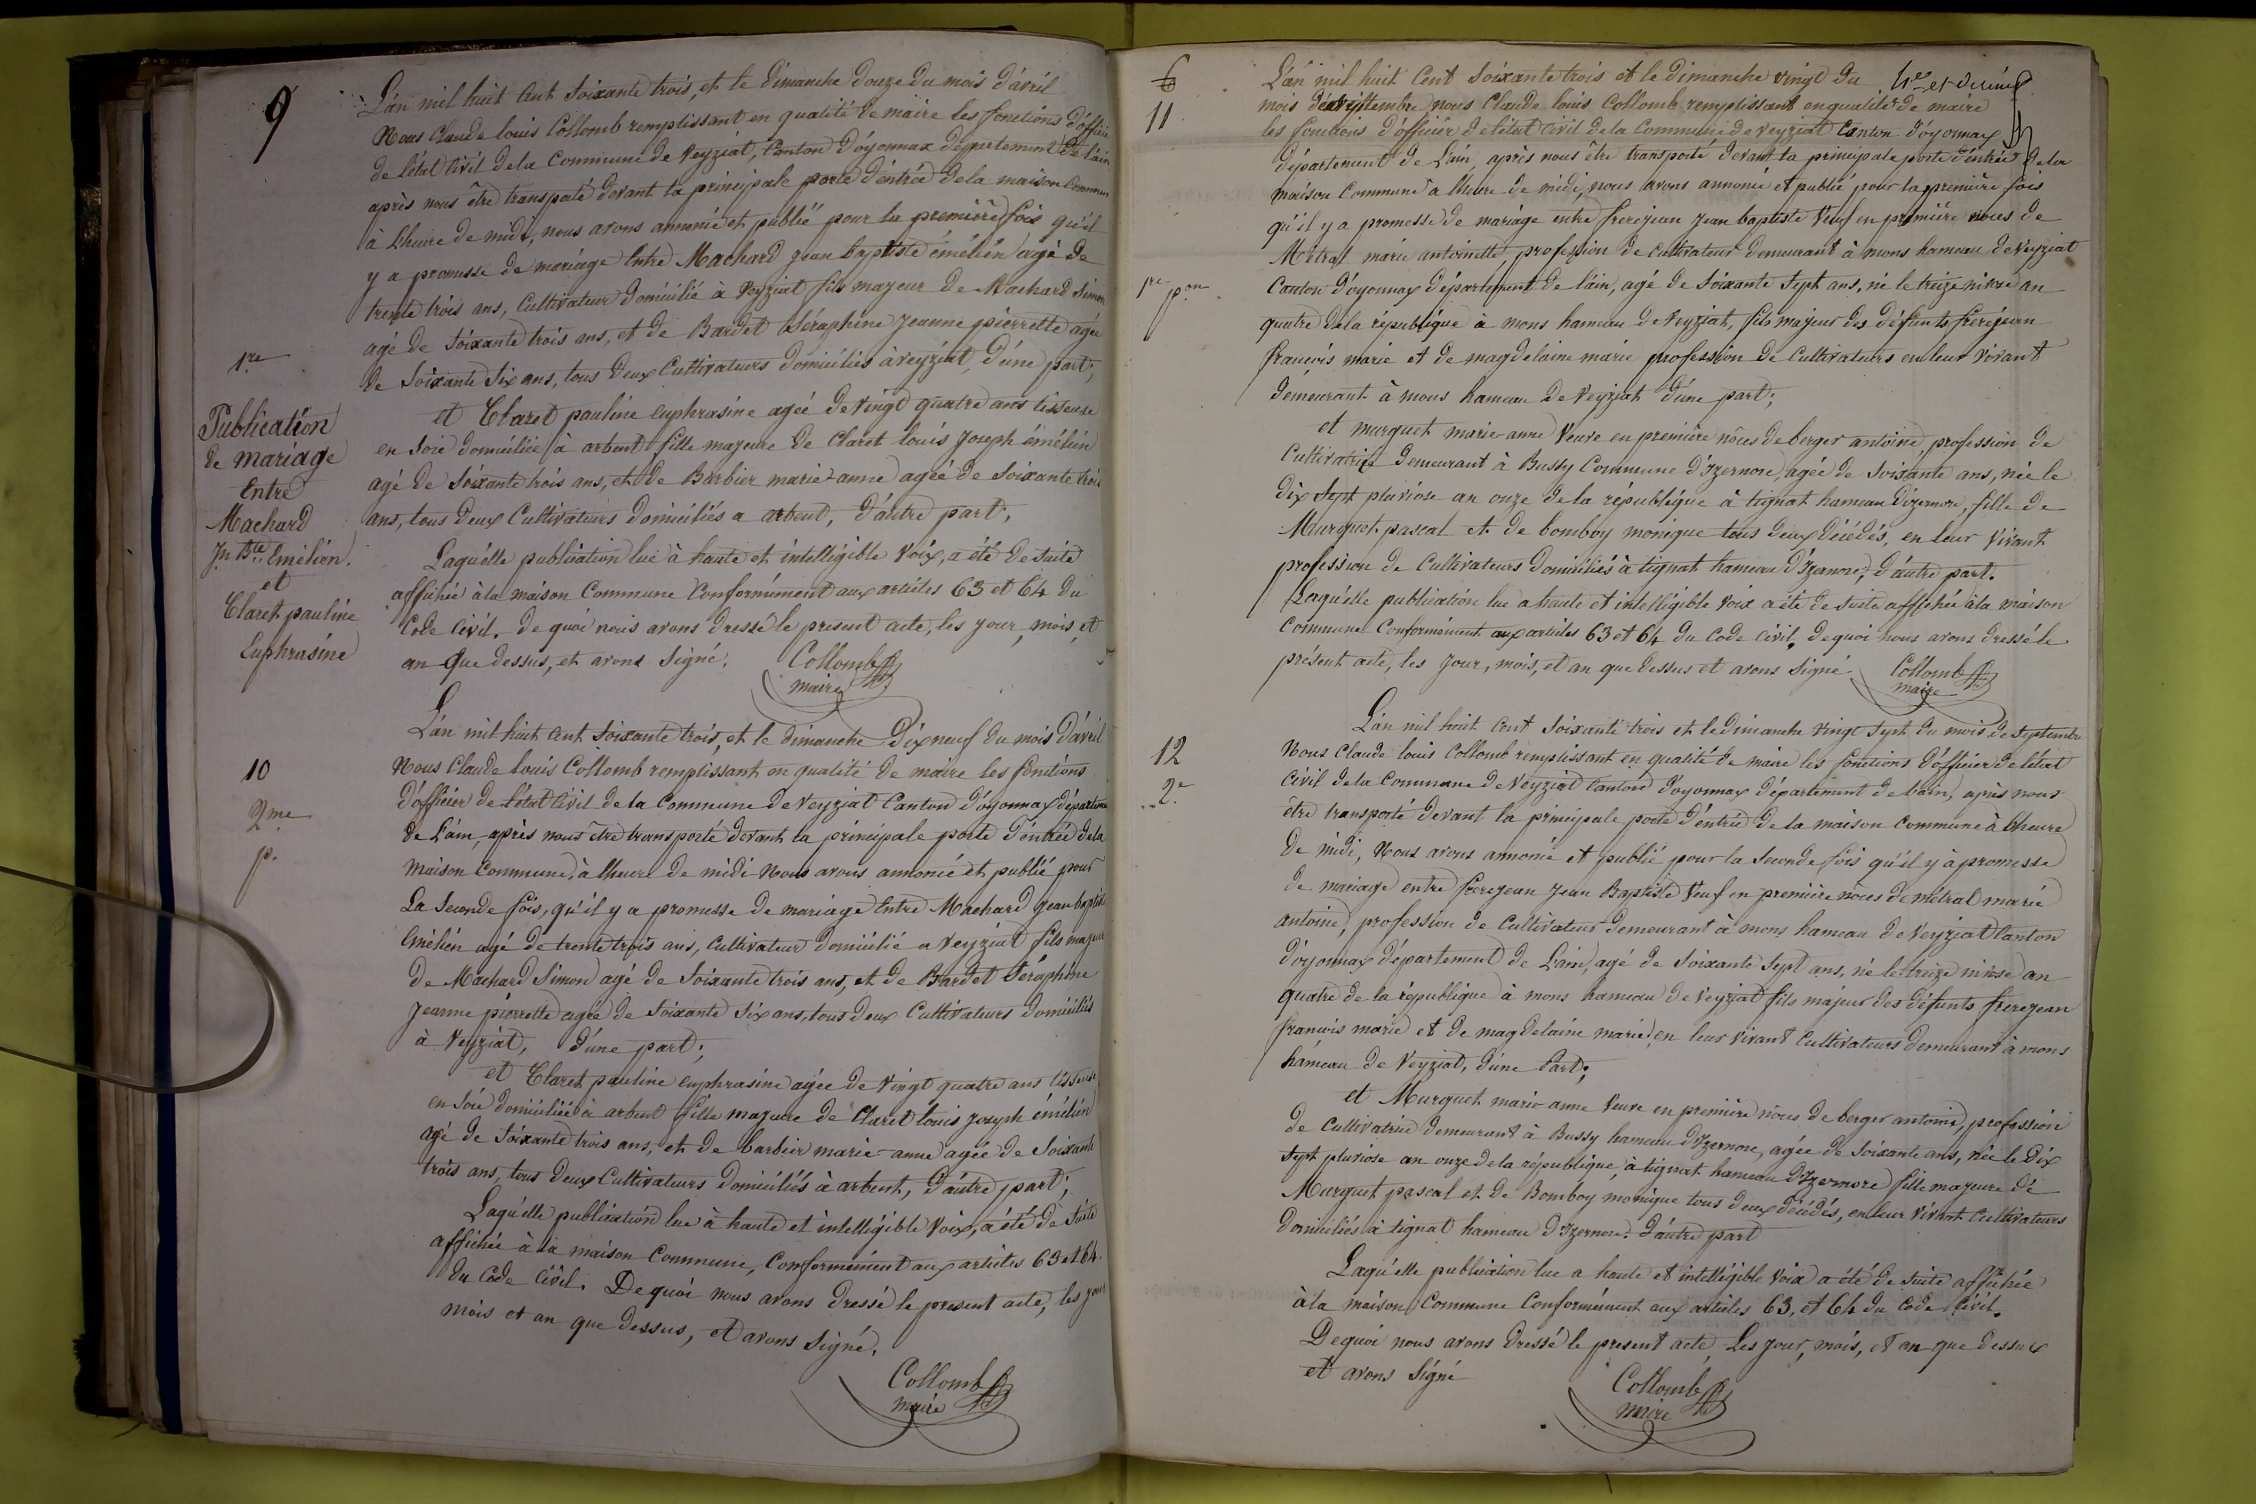 9
L'án mil huit cent soixante trois, et le dimanche douze du mois d'ávril
Nous Claude louis Collomb remplissant en qualité de maire les fonctions d'officier
de l'état Civil de la Commune de Veyziat, Canton d'óyonnax département de l'ain
après nous être transporté devant la principale porte d'entrée de la maison Commune
à l'heure de midi, nous avons annoncé et publié pour la première fois qu'il
y a promesse de mariage Entre Machard Jean baptiste émélién agé de
trente trois ans, Cultivateur domicilié à Veyziat fils majeur de Machard Simon
agé de soixante trois ans, et de Bardet Séraphine Jeanne pierrette agée
de soixante six ans, tous deux Cultivateurs domiciliés à veyziat, d'úne part;
et Claret pauline euphrasine agée de vingt quatre ans tisseuse
en soie domiciliée à arbent fille majeure de Claret louis Joseph émélién
agé de soixante trois ans, et de Barbier marie-anne agée de soixante trois
ans, tous deux Cultivateurs domiciliés a arbent, d'áutre part;
Laquélle publication lue à haute et intelligible Voix, a été de suite
affichée à la maison Commune Conformément aux articles 63 et 64 du
Code Civil. de quoi nous avons dressé le present acte, les jour, mois, et
an que dessus, et avons signé.
Collomb
maire
1re
Publication
de mariage
Entre
Machard
Jn Bte Emélién.
et
Claret pauline
Euphrasine
10
2me
p.
L'án mil huit cent soixante trois, et le dimanche Dix neuf du mois d'ávril
Nous Claude louis Collomb remplissant en qualité de maire les fonctions
d'officier de l'état Civil de la Commune de Veyziat Canton d'óyonnax départemen
de L'ain, après nous être transporté devant la principale porte d'éntrée de la
maison Commune, à lheure de midi Nous avons annoncé et publié pour
La seconde fois, qu'il y a promesse de mariage Entre Machard Jean baptiste
Emélién agé de trente trois ans, cultivateur domicilié a Veyziat fils majeur
de Machard Simon agé de soixante trois ans, et de Bardet Séraphine
Jeanne pierrette agée de soixante six ans, tous deux Cultivateurs domiciliés
à Veyziat, d'úne part;
et Claret pauline euphrasine agée de vingt quatre ans tisseuse
en soie domiciliée à arbent fille majeure de Claret louis Joseph émélién
agé de soixante trois ans, et de barbier marie-anne agée de soixante
trois ans, tous deux Cultivateurs domiciliés à arbent, d'áutre part;
Laquélle publication lue à haute et intelligible Voix, a été de suite
affichée à la maison Commune, Conformément aux articles 63 et 64
du Code Civil. De quoi nous avons dressé le present acte, les jour
mois et an que dessus, et avons signé.
Collomb
maire
6
11
1re
pon
L'án mil huit Cent soixante trois et le dimanche vingt du
mois de septembre nous Claude louis Collomb remplissant en qualité de maire
les fonctions d'officier de l'état Civil de la Commune de Veyziat Canton d'óyonnax
département de L'ain, après nous être transporté devant la principale porte d'éntrée de la
maison Commune à lheure de midi, nous avons annoncé et publié pour la première fois
qu'il y a promesse de mariage entre frerejean Jean baptiste Veuf en première noces de
Métral marie antoinette, profession de Cultivateur demeurant à mons hameau de Veyziat
Canton d'óyonnax département de l'ain, agé de soixante sept ans, né le treize nivose an
quatre de la république à mons hameau de Veyziat, fils majeur des défunts frerejean
françois marie et de magdelaine marie profession de Cultivateurs en leur vivant
demeurant à mons hameau de Veyziat d'úne part;
et murguet marie-anne Veuve en première nôces de berger antoine, profession de
Cultivatrice demeurant à Bussy Commune d'Izernore, agée de soixante ans, née le
dix sept pluviose an onze de la république à tignat hameau d'izernore, fille de
Murguet pascal et de bomboy monique tous deux décédés, en leur vivant
profession de Cultivateurs domiciliés à tignat hameau d'Izernore, d'áutre part.
Laquélle publication lue a haute et intelligible voix a été de suite affichée à la maison
commune Conformément aux articles 63 et 64 du Code Civil, de quoi nous avons dressé le
présent acte, les jour, mois, et an que dessus et avons signé
Collomb
maire
12
2e
L'án mil huit Cent soixante trois et le dimanche vingt sept du mois de septembre
Nous Claude louis Collomb remplissant en qualité de maire les fonctions d'officier de l'état
Civil de la Commune de Veyziat Canton d'óyonnax département de l'ain, après nous
être transporté devant la principale porte d'éntrée de la maison commune à lheure
de midi, Nous avons annoncé et publié pour la seconde fois qu'il y à promesse
de mariage entre frerejean Jean Baptiste Veuf en première nôces de métral marie
antoine, profession de Cultivateur demeurant à mons hameau de Veyziat Canton
d'óyonnax département de L'ain, agé de soixante sept ans, né le treize nivose an
quatre de la république à mons hameau de Veyziat fils majeur des défunts frerejean
françois marie et de magdelaine marie, en leur vivant Cultivateurs demeurant à mons
hameau de Veyziat, d'úne part;
et Murguet marie anne Veuve en première nôces de berger antoine, profession
de Cultivatrice demeurant à Bussy hameau d'Izernore, agée de soixante ans, née le dix
sept pluviose an onze de la république, à tignat hameau d'Izernore fille majeure de
Murguet pascal et de Bomboy monique tous deux décédés, en leur vivant Cultivateurs
domiciliés à tignat hameau d'Izernore. d'áutre part
Laqu'elle publication lue a haute et intelligible Voix a été de suite affichée
à la maison Commune Conformément aux articles 63, et 64 du Code Civil.
De quoi nous avons dressé le present acte, Les jour, mois, et an que dessus
et avons signé
Collomb
maire